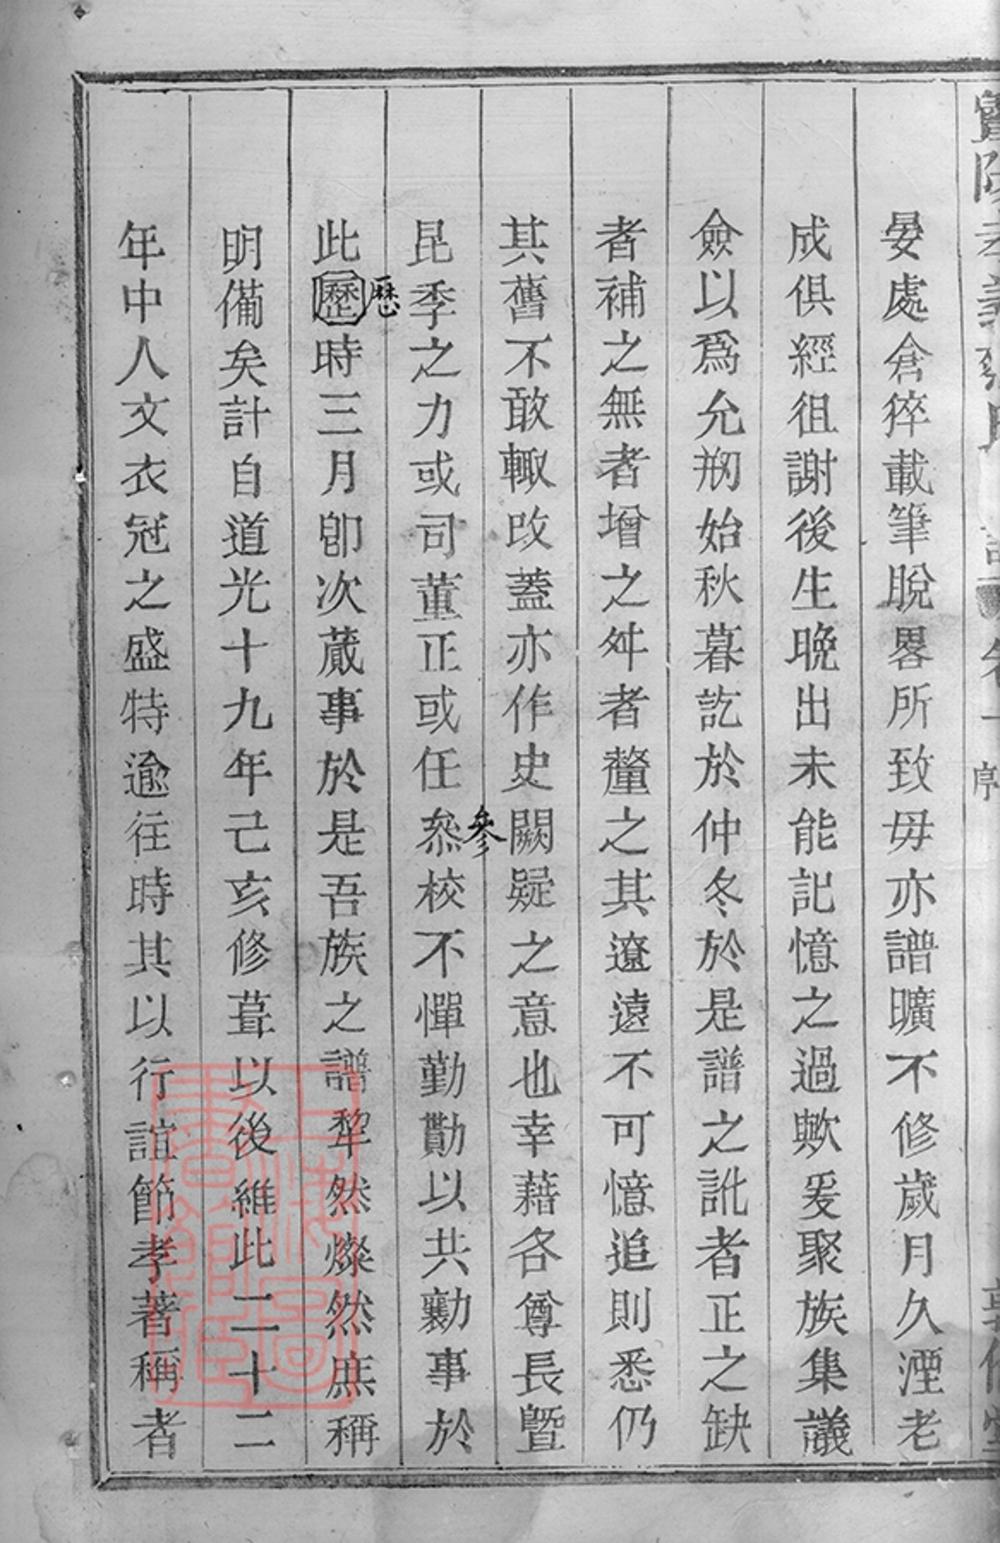 晏處倉猝載筆脫畧所致毋亦譜曠不修歲月久湮老
成俱經徂謝後生晚出未能記憶之過歟爰聚族集議
僉以爲允刱始秋暮訖於仲冬於是譜之訛者正之缺
者補之無者增之舛者釐之其遼遠不可憶追則悉仍
其舊不敢輙改蓋亦作史闕疑之意也幸藉各尊長曁
參
昆季之力或司董正或任叅校不憚勤勩以共勷事於
歷
此歷時三月卽次蕆事於是吾族之譜犂然燦然庶稱
明備矣計自道光十九年己亥修葺以後維此二十二
年中人文衣冠之盛特逾往時其以行誼節孝著稱者
上海圖書館藏